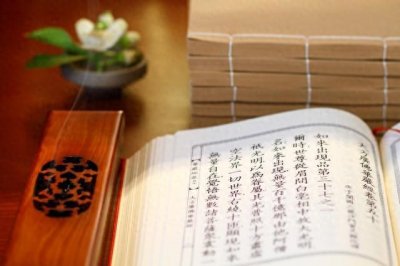 大方廣佛華嚴經卷第五十
如來出現品第三十七之一
爾時世尊從眉間白毫相中放大光明
名如來出現無量百千億那由他阿僧
祇光明以為眷屬其光普照十方盡虛
空法界一切世界右繞十匝顯現如來
無量自在覺悟無數諸菩薩衆震動